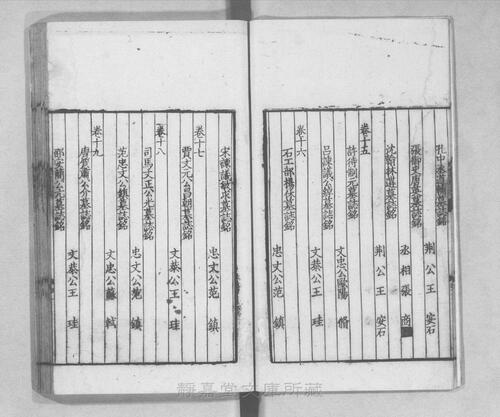 孔中丞道輔墓誌銘　荆公王安石
張御史唐英墓誌銘　丞相張商
沈翰林遘墓誌銘　荆公王安石
卷十五
許待制元墓誌銘　文忠公歐陽脩
呂諫議公綽墓誌銘　文恭公王珪
卷十六
石工部揚休墓誌銘　忠文公范鎮
宋諫議敏求墓誌銘　忠文公范鎮
卷十七
賈文元公昌朝墓誌銘　文恭公王珪
卷十八
司馬文正公光墓誌銘　忠文公范鎮
范忠文公鎮墓誌銘　文忠公蘇軾
卷十九
唐質肅公介墓誌銘　文恭公王珪
邵安簡公亢墓誌銘
靜嘉堂文庫所藏